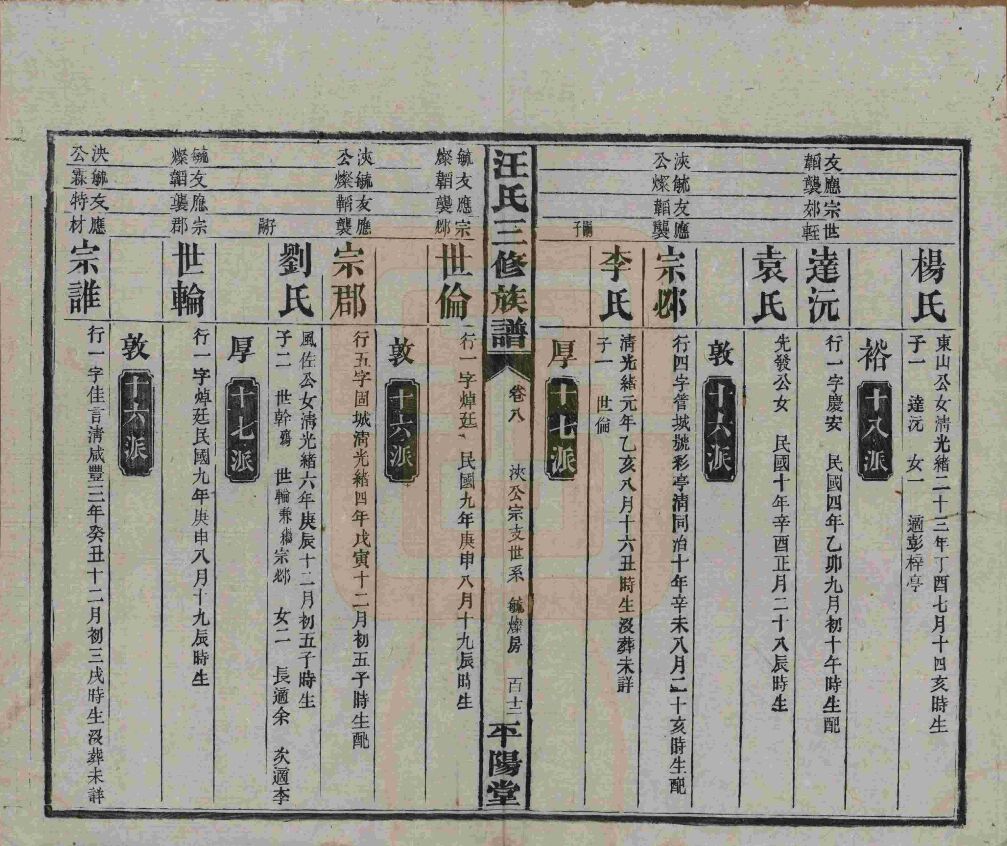 楊氏
東山公女淸光緒二十三年丁酉七月十四亥時生
子一 達沅 女一 適彭梓亭
裕十八派
友應宗世
韜襲郊輊
達沅
行一字慶安 民國四年乙卯九月初十午時生配
袁氏
先發公女 民國十年辛酉正月二十八辰時生
敦十六派
浹毓友應
公燦韜襲
宗邲
行四字管城號彩亭淸同治十年辛未八月二十亥時生配
嗣子
李氏
淸光緒元年乙亥八月十六丑時生沒葬未詳
子一 世倫
厚十七派
汪氏三修族譜
卷八
浹公宗支世系 毓燦房
百十二
平陽堂
毓友應宗
燦韜襲邲
世倫
行一字焯廷 民國九年庚申八月十九辰時生
敦十六派
浹毓友應
公燦韜襲
宗郡
行五字固城淸光緒四年戊寅十二月初五子時生配
嗣子
劉氏
風佐公女淸光緒六年庚辰十二月初五子時生
子二 世幹殤 世輪兼繼宗邲 女二 長適余 次適李
厚十七派
毓友應宗
燦韜襲郡
世輪
行一字焯廷民國九年庚申八月十九辰時生
敦十六派
浹毓友應
公霖特材
宗誰
行一字佳言淸咸豐三年癸丑十二月初三戌時生沒葬未詳